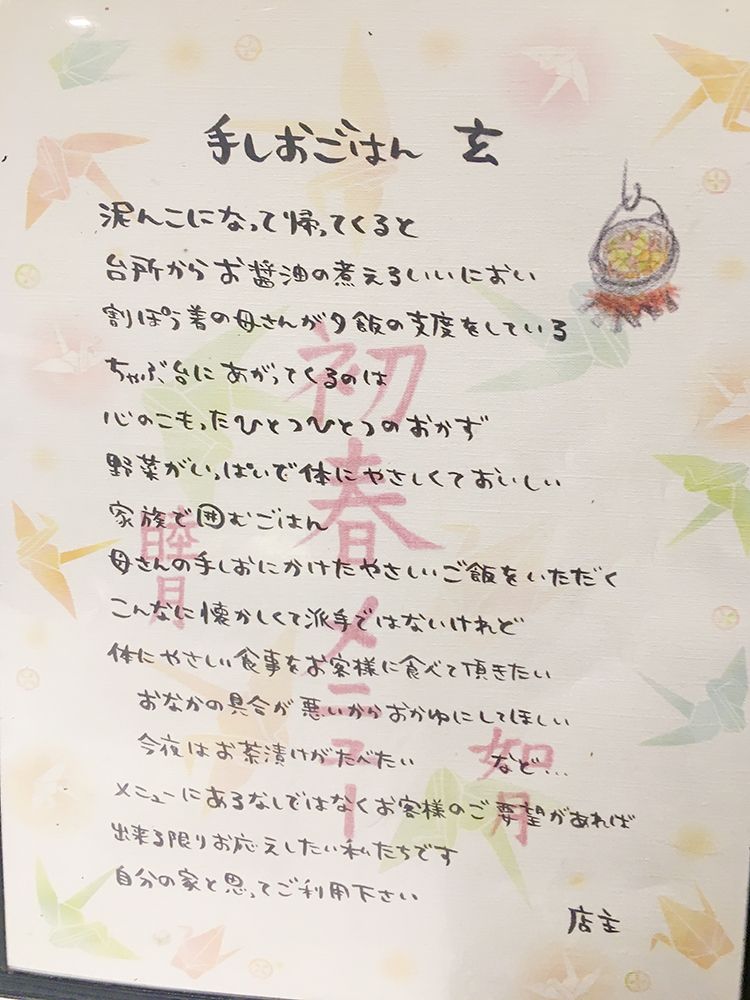 手しおごはん 玄
泥んこになって帰ってくると
台所からお醤油の煮えるいいにおい
割ぽう着の母さんが夕飯の支度をしている
ちゃぶ台にあがってくるのは
心のこもったひとつひとつのおかず
野菜がいっぱいで体にやさしくておいしい
家族で囲むごはん
母さんの手しおにかけたやさしいご飯をいただく
こんなに懐かしくて派手ではないけれど
体にやさしい食事をお客様に食べて頂きたい
おなかの具合が悪いからおかゆにしてほしい
今夜はお茶漬けがたべたい など…
メニューにあるなしではなくお客様のご要望があれば
出来る限りお応えしたい私たちです
自分の家と思ってご利用下さい
店主
初春メニュー
睦月
如月